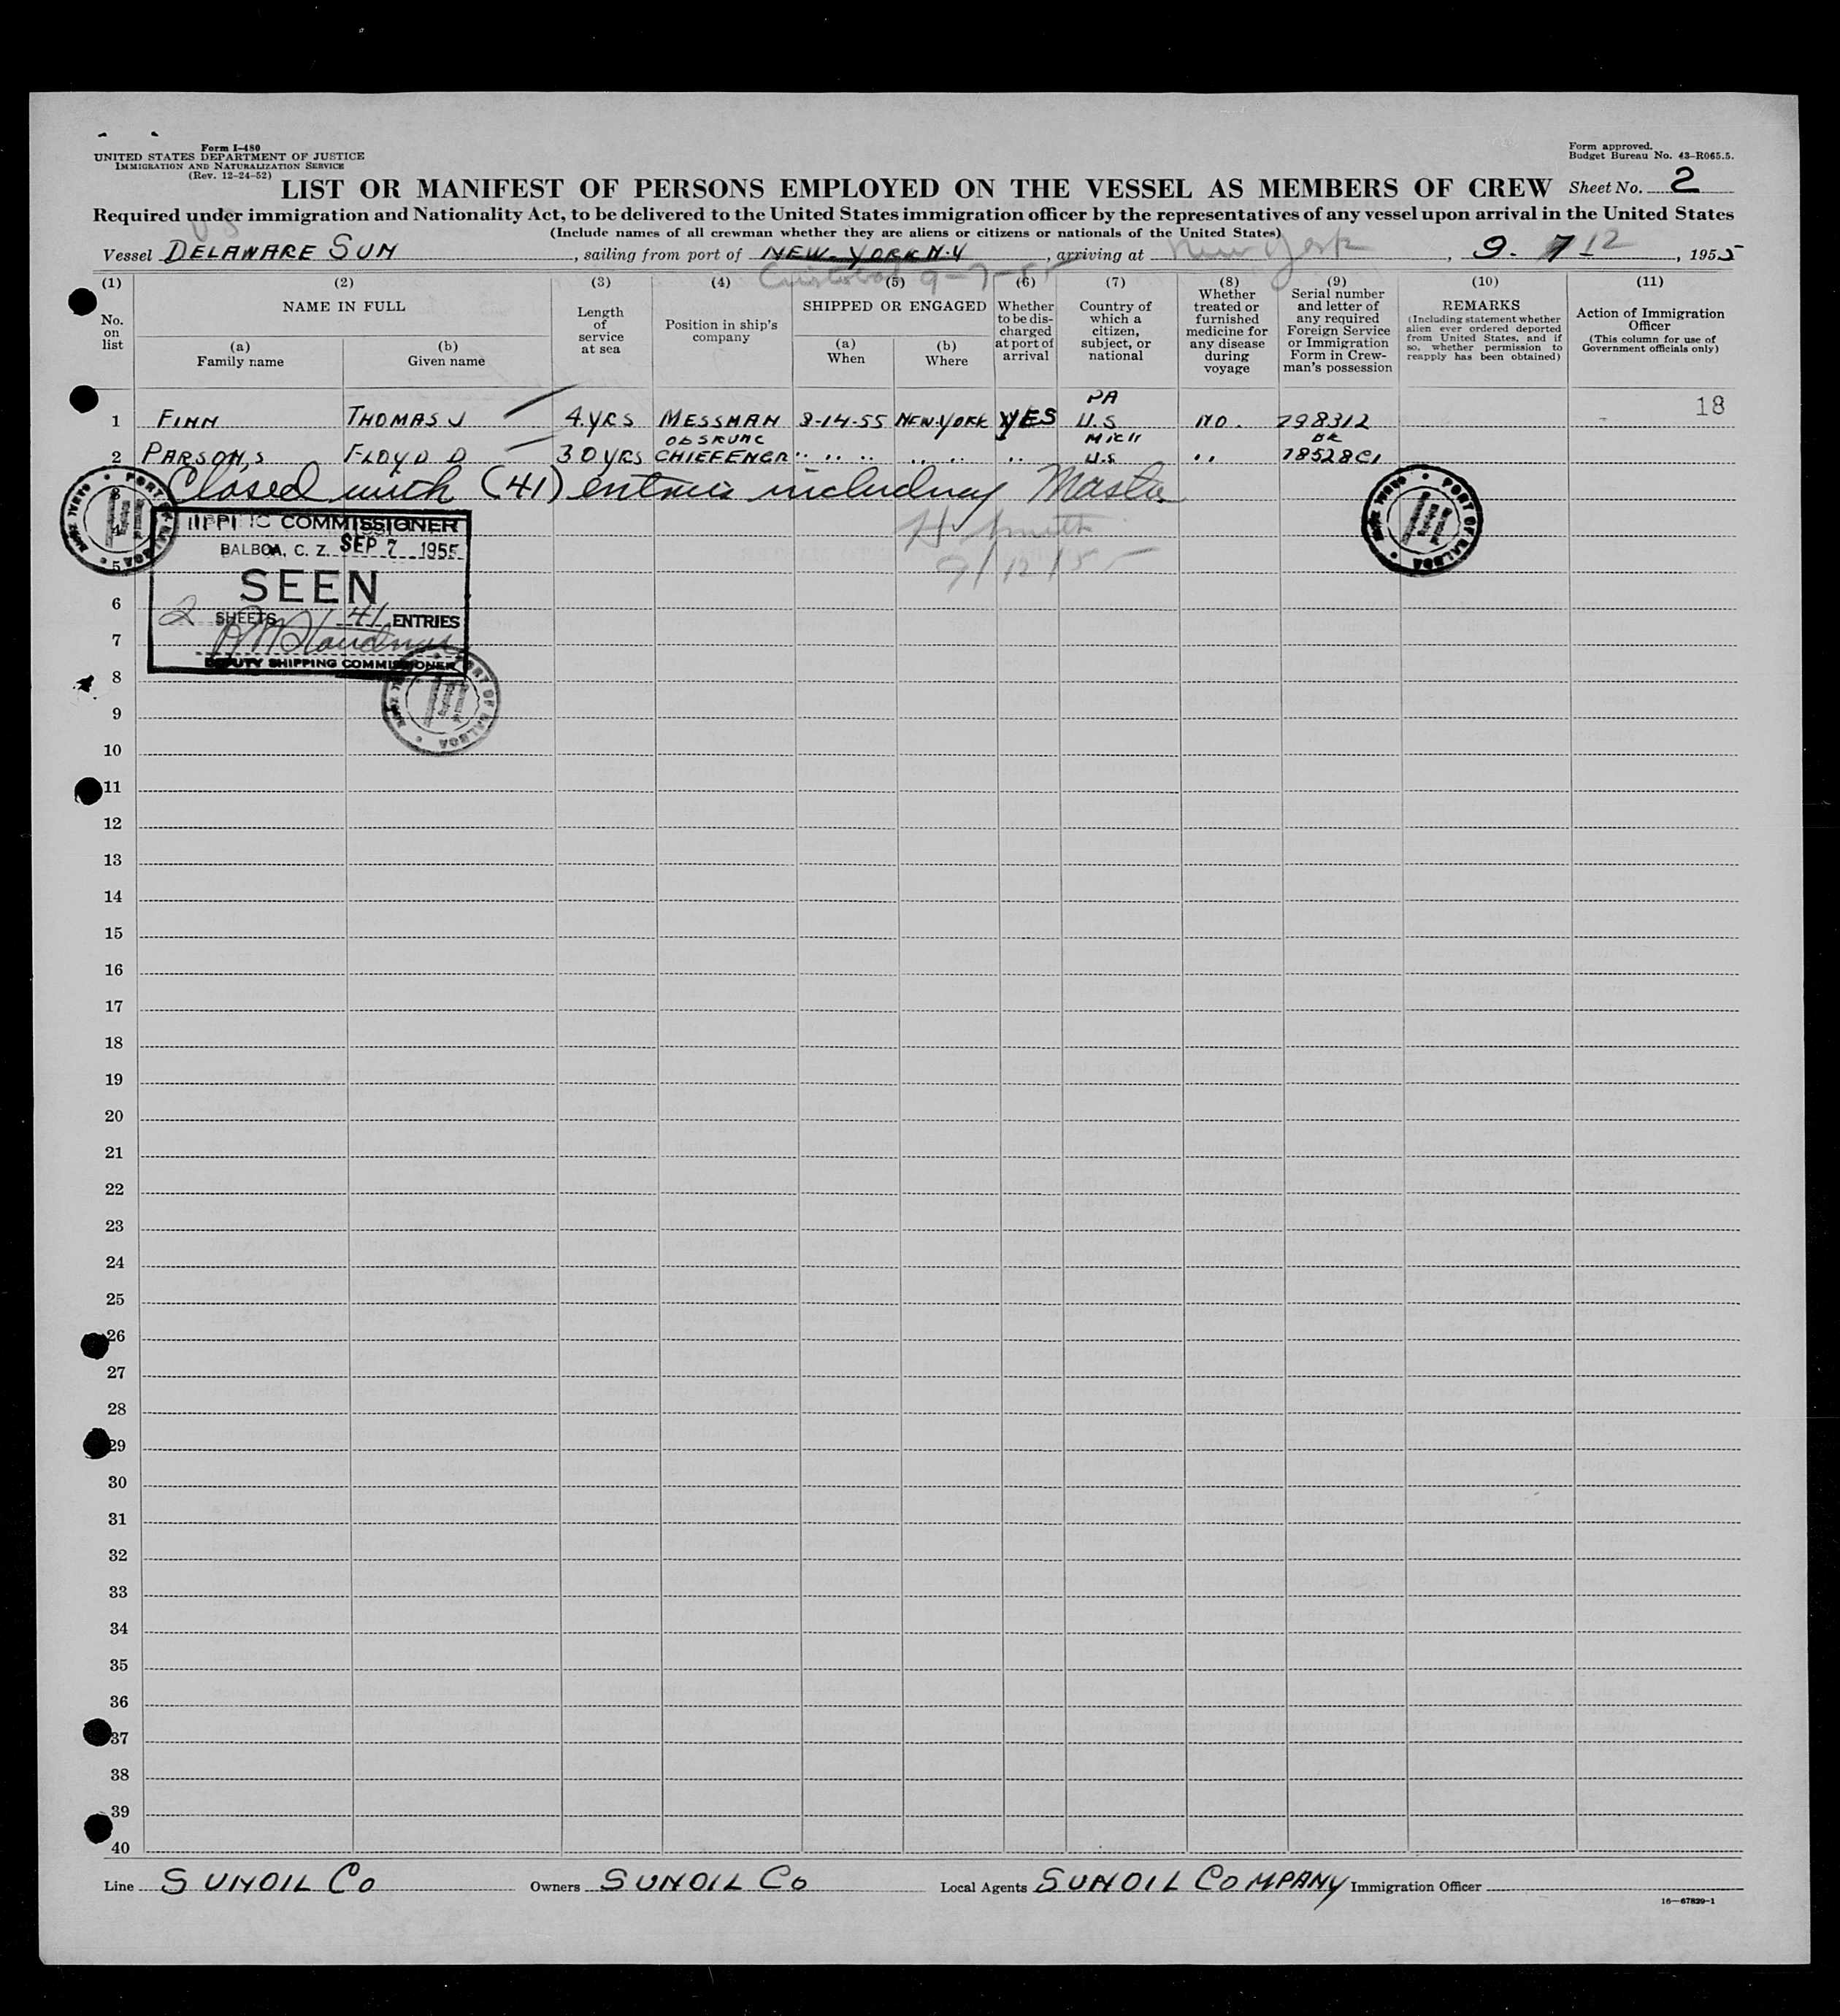 Form I-480
UNITED STATES DEPARTMENT OF JUSTICE
IMMIGRATION AND NATURALIZATION SERVICE
(Rev. 12-24-52)
Form approved.
Budget Bureau No. 43-R065.5.
LIST OR MANIFEST OF PERSONS EMPLOYED ON THE VESSEL AS MEMBERS OF CREW Sheet No. 2
Required under immigration and Nationality Act, to be delivered to the United States immigration officer by the representatives of any vessel upon arrival in the United States
(Include names of all crewman whether they are aliens or citizens or nationals of the United States)
US
Vessel DELAWARE SUN, sailing from port of NEW-YORK N.Y, arriving at New York, 9. 7 12, 1955
Cristobal 9-7-55
(1) (2) (3) (4) (5) (6) (7) (8) (9) (10) (11)
No. on list
NAME IN FULL
(a) Family name
(b) Given name
Length of service at sea
Position in ship's company
SHIPPED OR ENGAGED
(a) When
(b) Where
Whether to be discharged at port of arrival
Country of which a citizen, subject, or national
Whether treated or furnished medicine for any disease during voyage
Serial number and letter of any required Foreign Service or Immigration Form in Crewman's possession
REMARKS
(Including statement whether alien ever ordered deported from United States, and if so, whether permission to reapply has been obtained)
Action of Immigration Officer
(This column for use of Government officials only)
18
PA
1 FINN THOMAS J 4.YRS MESSMAN 8-14-55 NEW-YORK YES U.S NO. 298312
MICH BK
2 PARSON,S FLOYD D 30 YRS CHIEFENGR " " " " " " U.S " 78528C1
3 Closed with (41) entries including Master
4
H Smith
5
9/12/55
SHIPPING COMMISSIONER
BALBOA, C. Z. SEP 7 1955
SEEN
2 SHEETS 41 ENTRIES
DEPUTY SHIPPING COMMISSIONER
PORT OF BALBOA
CANAL ZONE
PORT OF BALBOA
CANAL ZONE
PORT OF BALBOA
CANAL ZONE
6
7
8
9
10
11
12
13
14
15
16
17
18
19
20
21
22
23
24
25
26
27
28
29
30
31
32
33
34
35
36
37
38
39
40
Line SUNOIL Co Owners SUNOIL Co Local Agents SUNOIL COMPANY Immigration Officer
16—67829-1